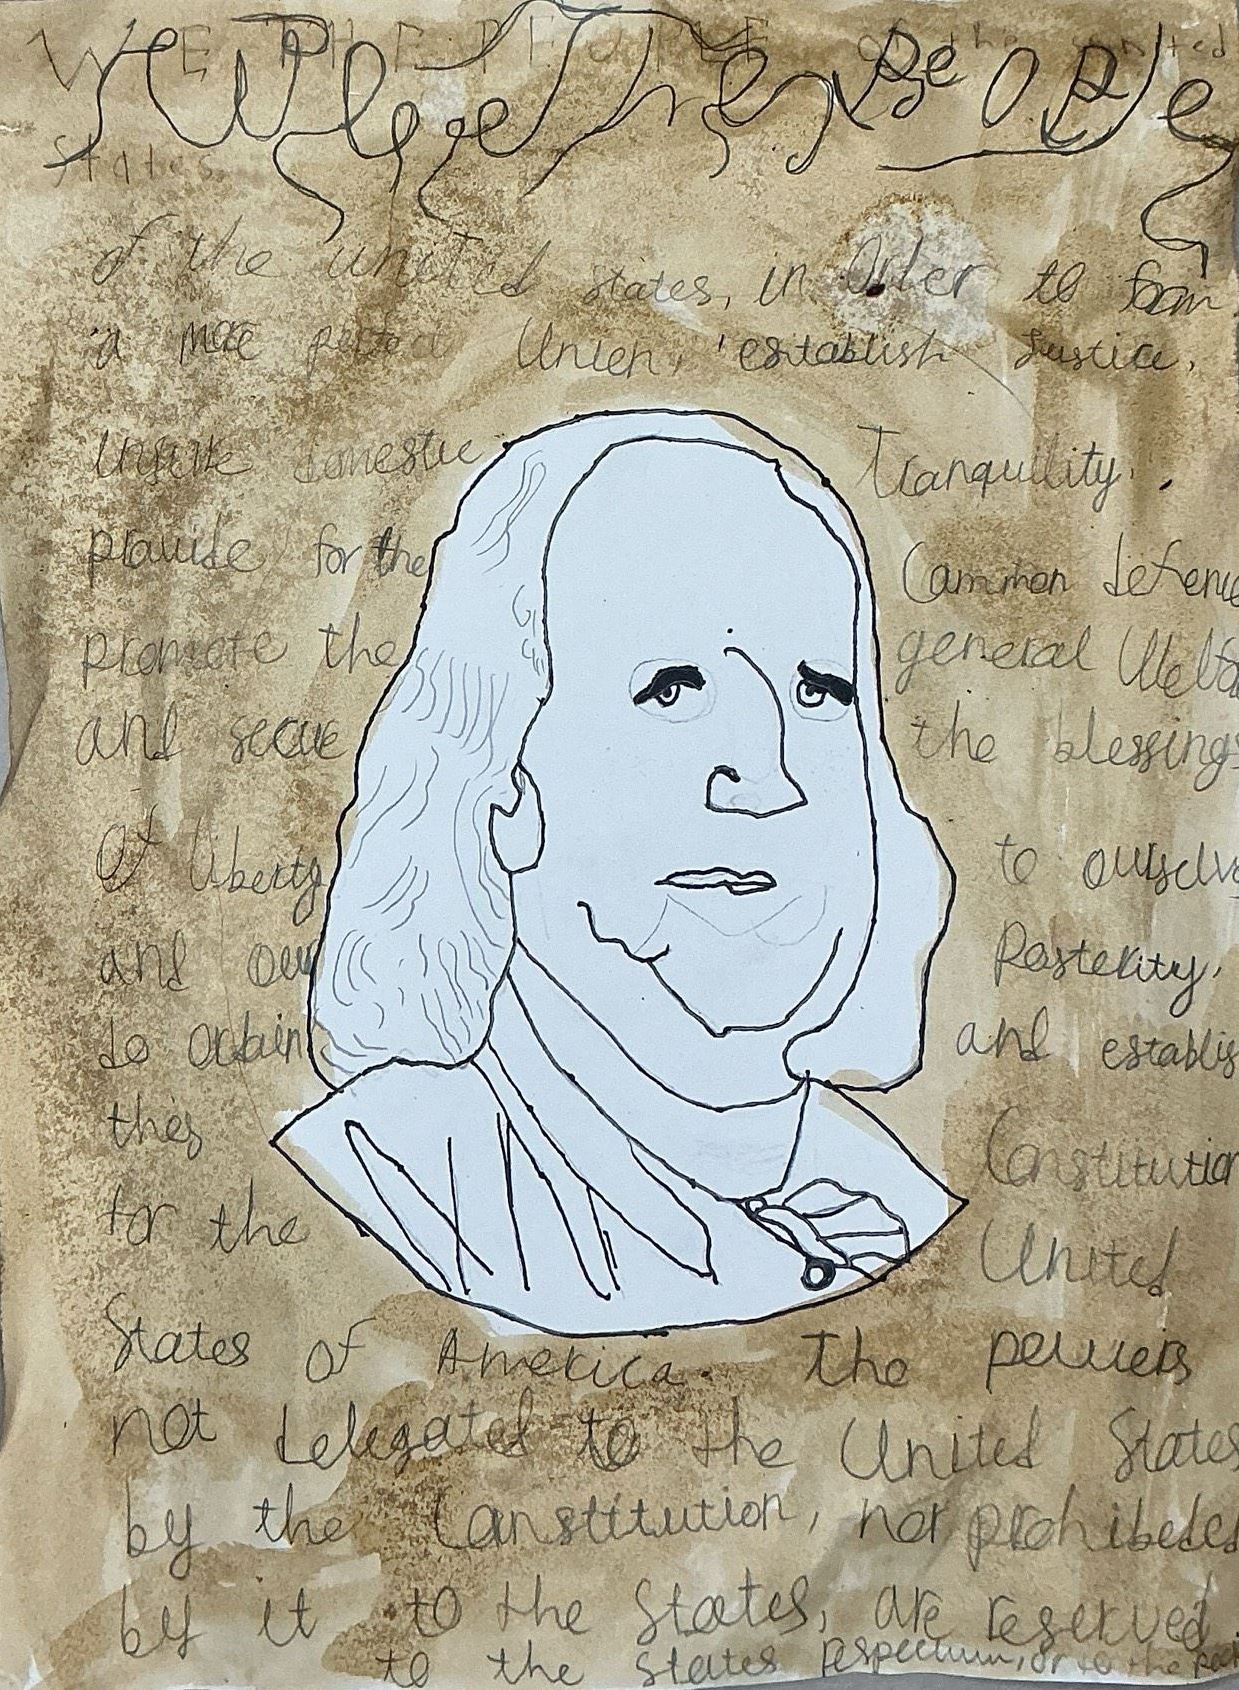 WE THE PEOPLE of the United
States
We The People
of the united states, in Order to form
a more perfect Union, establish Justice,
insure domestic Tranquility.
provide for the Common defence
promote the general Welfa
and secure the blessings
of liberty to ourselv
and our Posterity,
do ordain and establis
this Constitution
for the United
States of America. The powers
not delegated to the United States
by the Constitution, nor prohibeded
by it to the States, are reserved
to the states respectivm, or to the peo